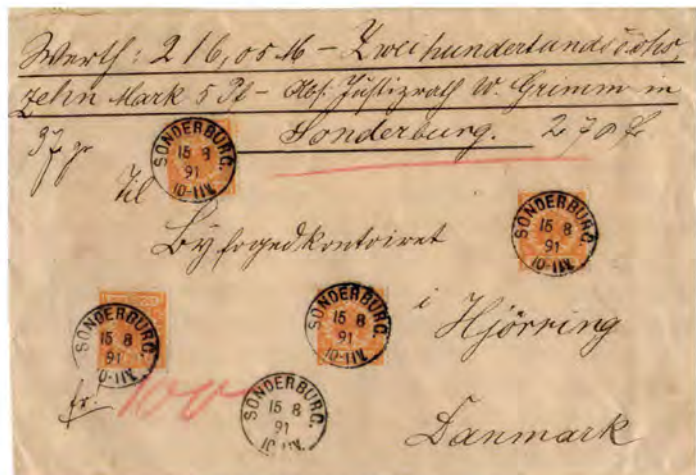 Werth: 216,05 M – Zweihundertundsechs,
zehn Mark 5 Pf – Abs: Justizrath W. Grimm in
Sonderburg. 270
37 gr
SONDERBURG.
15 8
91
10-11V.
Til
Byfogedkontoiret
SONDERBURG.
15 8
91
10-11V.
i
Hjörring
SONDERBURG.
15 8
91
10-11V.
SONDERBURG.
15 8
91
10-11V.
fr. 100
SONDERBURG.
15 8
91
10-11V.
Danmark